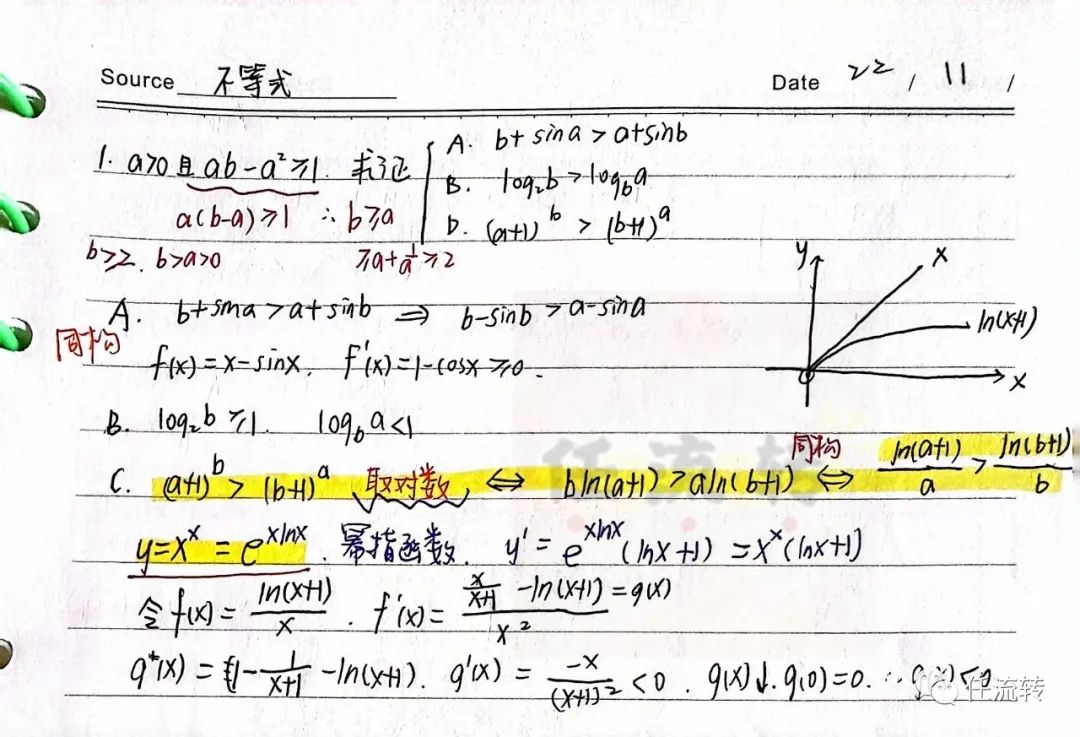 Source 不等式 Date 22 / 11 /
1. a>0且ab-a²≥1. 求证
A. b+sina>a+sinb
B. log₂b>log_b a
D. (a+1)^b > (b+1)^a
a(b-a)≥1 ∴b≥a
b≥2. b>a>0 ≥a+1/a≥2
y x ln(x+1) x
A. b+sina>a+sinb ⇒ b-sinb>a-sina
同构
f(x)=x-sinx. f'(x)=1-cosx≥0.
B. log₂b≥1. log_b a<1
C. (a+1)^b > (b+1)^a 取对数 ⇔ bln(a+1)>aln(b+1) 同构 ⇔ ln(a+1)/a > ln(b+1)/b
y=x^x=e^(xlnx). 幂指函数. y'=e^(xlnx)(lnx+1)=x^x(lnx+1)
令f(x)=ln(x+1)/x. f'(x)=(x/(x+1)-ln(x+1)=g(x))/x²
g(x)=1-1/(x+1)-ln(x+1). g'(x)=-x/(x+1)²<0. g(x)↓. g(0)=0. ∴g(x)<0
任流转